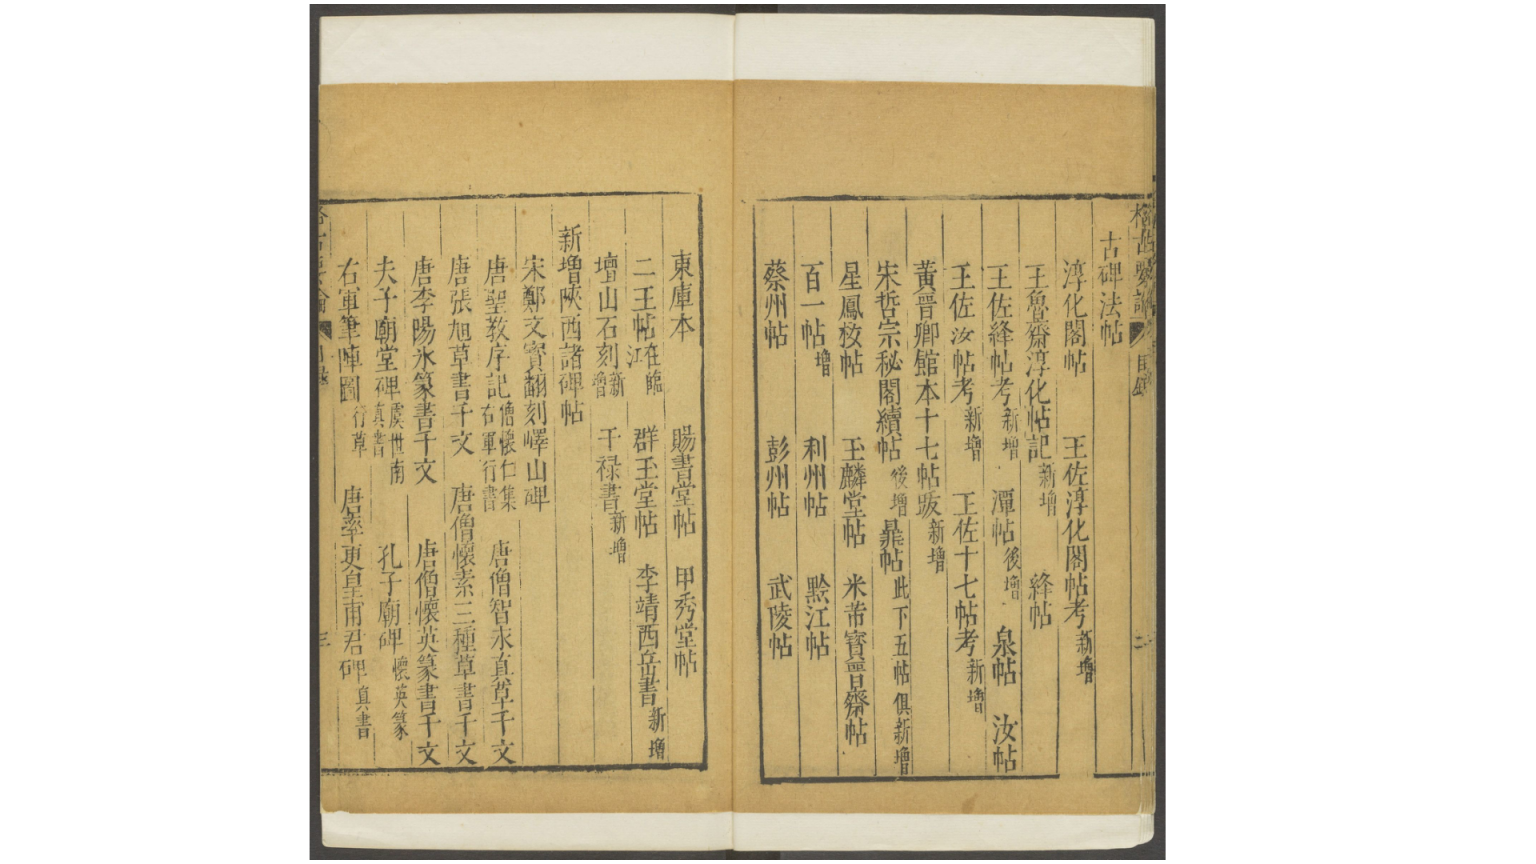 格古要論 目錄 二
古碑法帖
淳化閣帖 王佐淳化閣帖考新增
王魯齋淳化帖記新增 絳帖
王佐絳帖考新增 潭帖後增 泉帖 汝帖
王佐汝帖考新增 王佐十七帖考新增
黃晉卿館本十七帖跋新增
宋哲宗秘閣續帖後增 鼎帖此下五帖俱新增
星鳳楼帖 玉麟堂帖 米芾寳晉齋帖
百一帖增 利州帖 黔江帖
蔡州帖 彭州帖 武陵帖
東庫本 賜書堂帖 甲秀堂帖
二王帖在臨江 群玉堂帖 李靖西岳書新增
壇山石刻新增 干禄書新增
新增陜西諸碑帖
宋鄭文寳翻刻嶧山碑
唐聖教序記僧懷仁集右軍行書 唐僧智永真草千文
唐張旭草書千文 唐僧懷素三種草書千文
唐李陽氷篆書千文 唐僧懷英篆書千文
夫子廟堂碑虞世南真書 孔子廟碑懷英篆
右軍筆陣圖行草 唐率更皇甫君碑真書
三